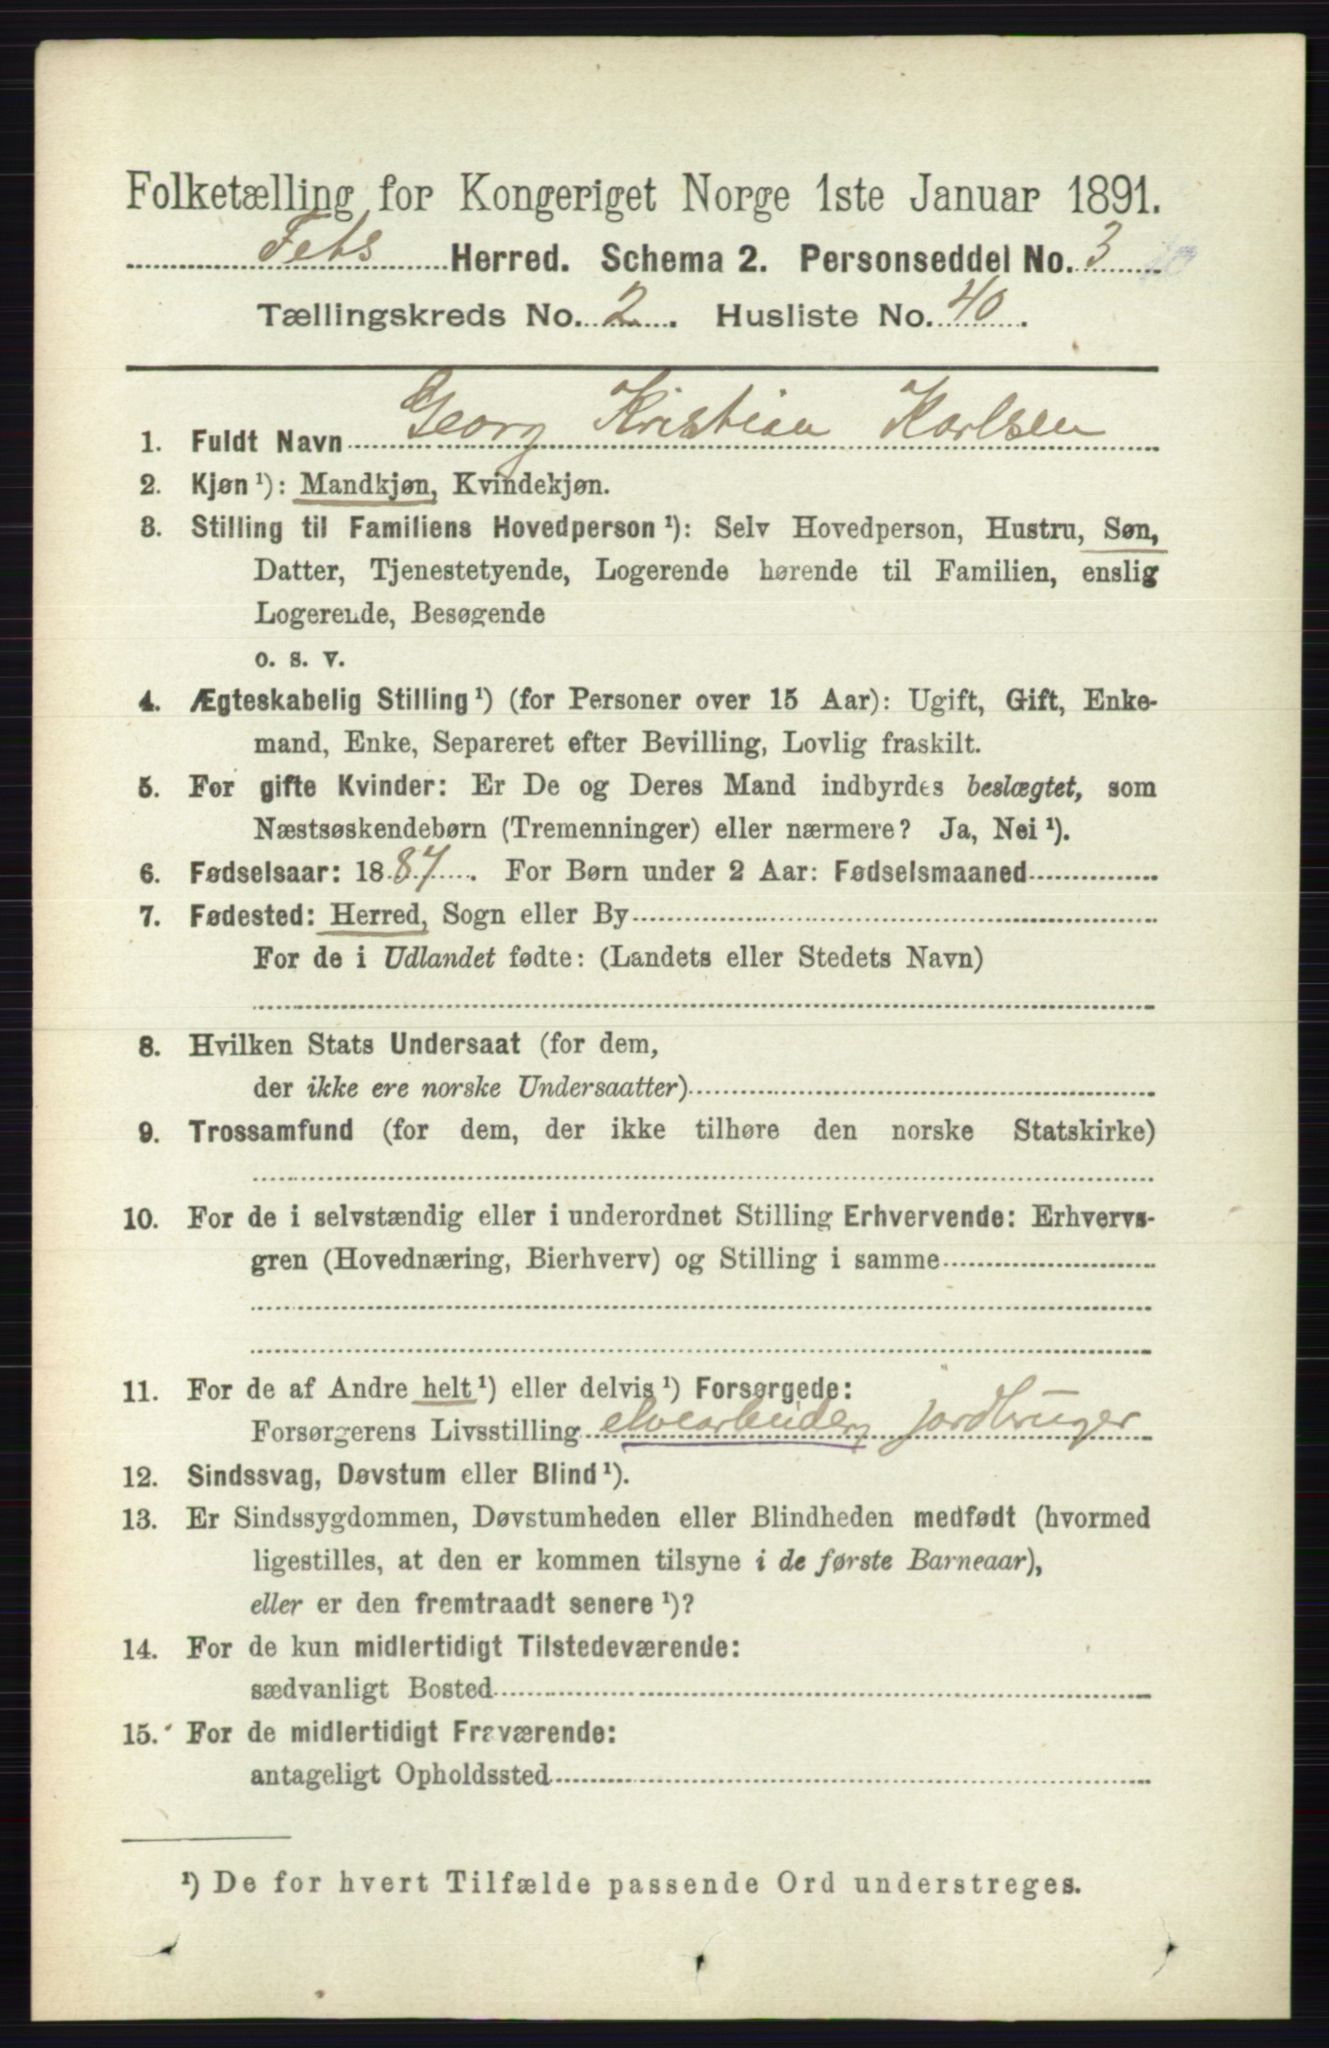 Folketælling for Kongeriget Norge 1ste Januar 1891.
Fets Herred. Schema 2. Personseddel No. 3
Tællingskreds No. 2. Husliste No. 40.
1. Fuldt Navn Georg Kristian Karlsen
2. Kjøn ¹): Mandkjøn, Kvindekjøn.
3. Stilling til Familiens Hovedperson ¹): Selv Hovedperson, Hustru, Søn,
Datter, Tjenestetyende, Logerende hørende til Familien, enslig
Logerende, Besøgende
o. s. v.
4. Ægteskabelig Stilling ¹) (for Personer over 15 Aar): Ugift, Gift, Enke-
mand, Enke, Separeret efter Bevilling, Lovlig fraskilt.
5. For gifte Kvinder: Er De og Deres Mand indbyrdes beslægtet, som
Næstsøskendebørn (Tremenninger) eller nærmere? Ja, Nei ¹).
6. Fødselsaar: 1887. For Børn under 2 Aar: Fødselsmaaned
7. Fødested: Herred, Sogn eller By
For de i Udlandet fødte: (Landets eller Stedets Navn)
8. Hvilken Stats Undersaat (for dem,
der ikke ere norske Undersaatter)
9. Trossamfund (for dem, der ikke tilhøre den norske Statskirke)
10. For de i selvstændig eller i underordnet Stilling Erhvervende: Erhvervs-
gren (Hovednæring, Bierhverv) og Stilling i samme
11. For de af Andre helt ¹) eller delvis ¹) Forsørgede:
Forsørgerens Livsstilling elvearbeider, jordbruger
12. Sindssvag, Døvstum eller Blind ¹).
13. Er Sindssygdommen, Døvstumheden eller Blindheden medfødt (hvormed
ligestilles, at den er kommen tilsyne i de første Barneaar),
eller er den fremtraadt senere ¹)?
14. For de kun midlertidigt Tilstedeværende:
sædvanligt Bosted
15. For de midlertidigt Fraværende:
antageligt Opholdssted
¹) De for hvert Tilfælde passende Ord understreges.